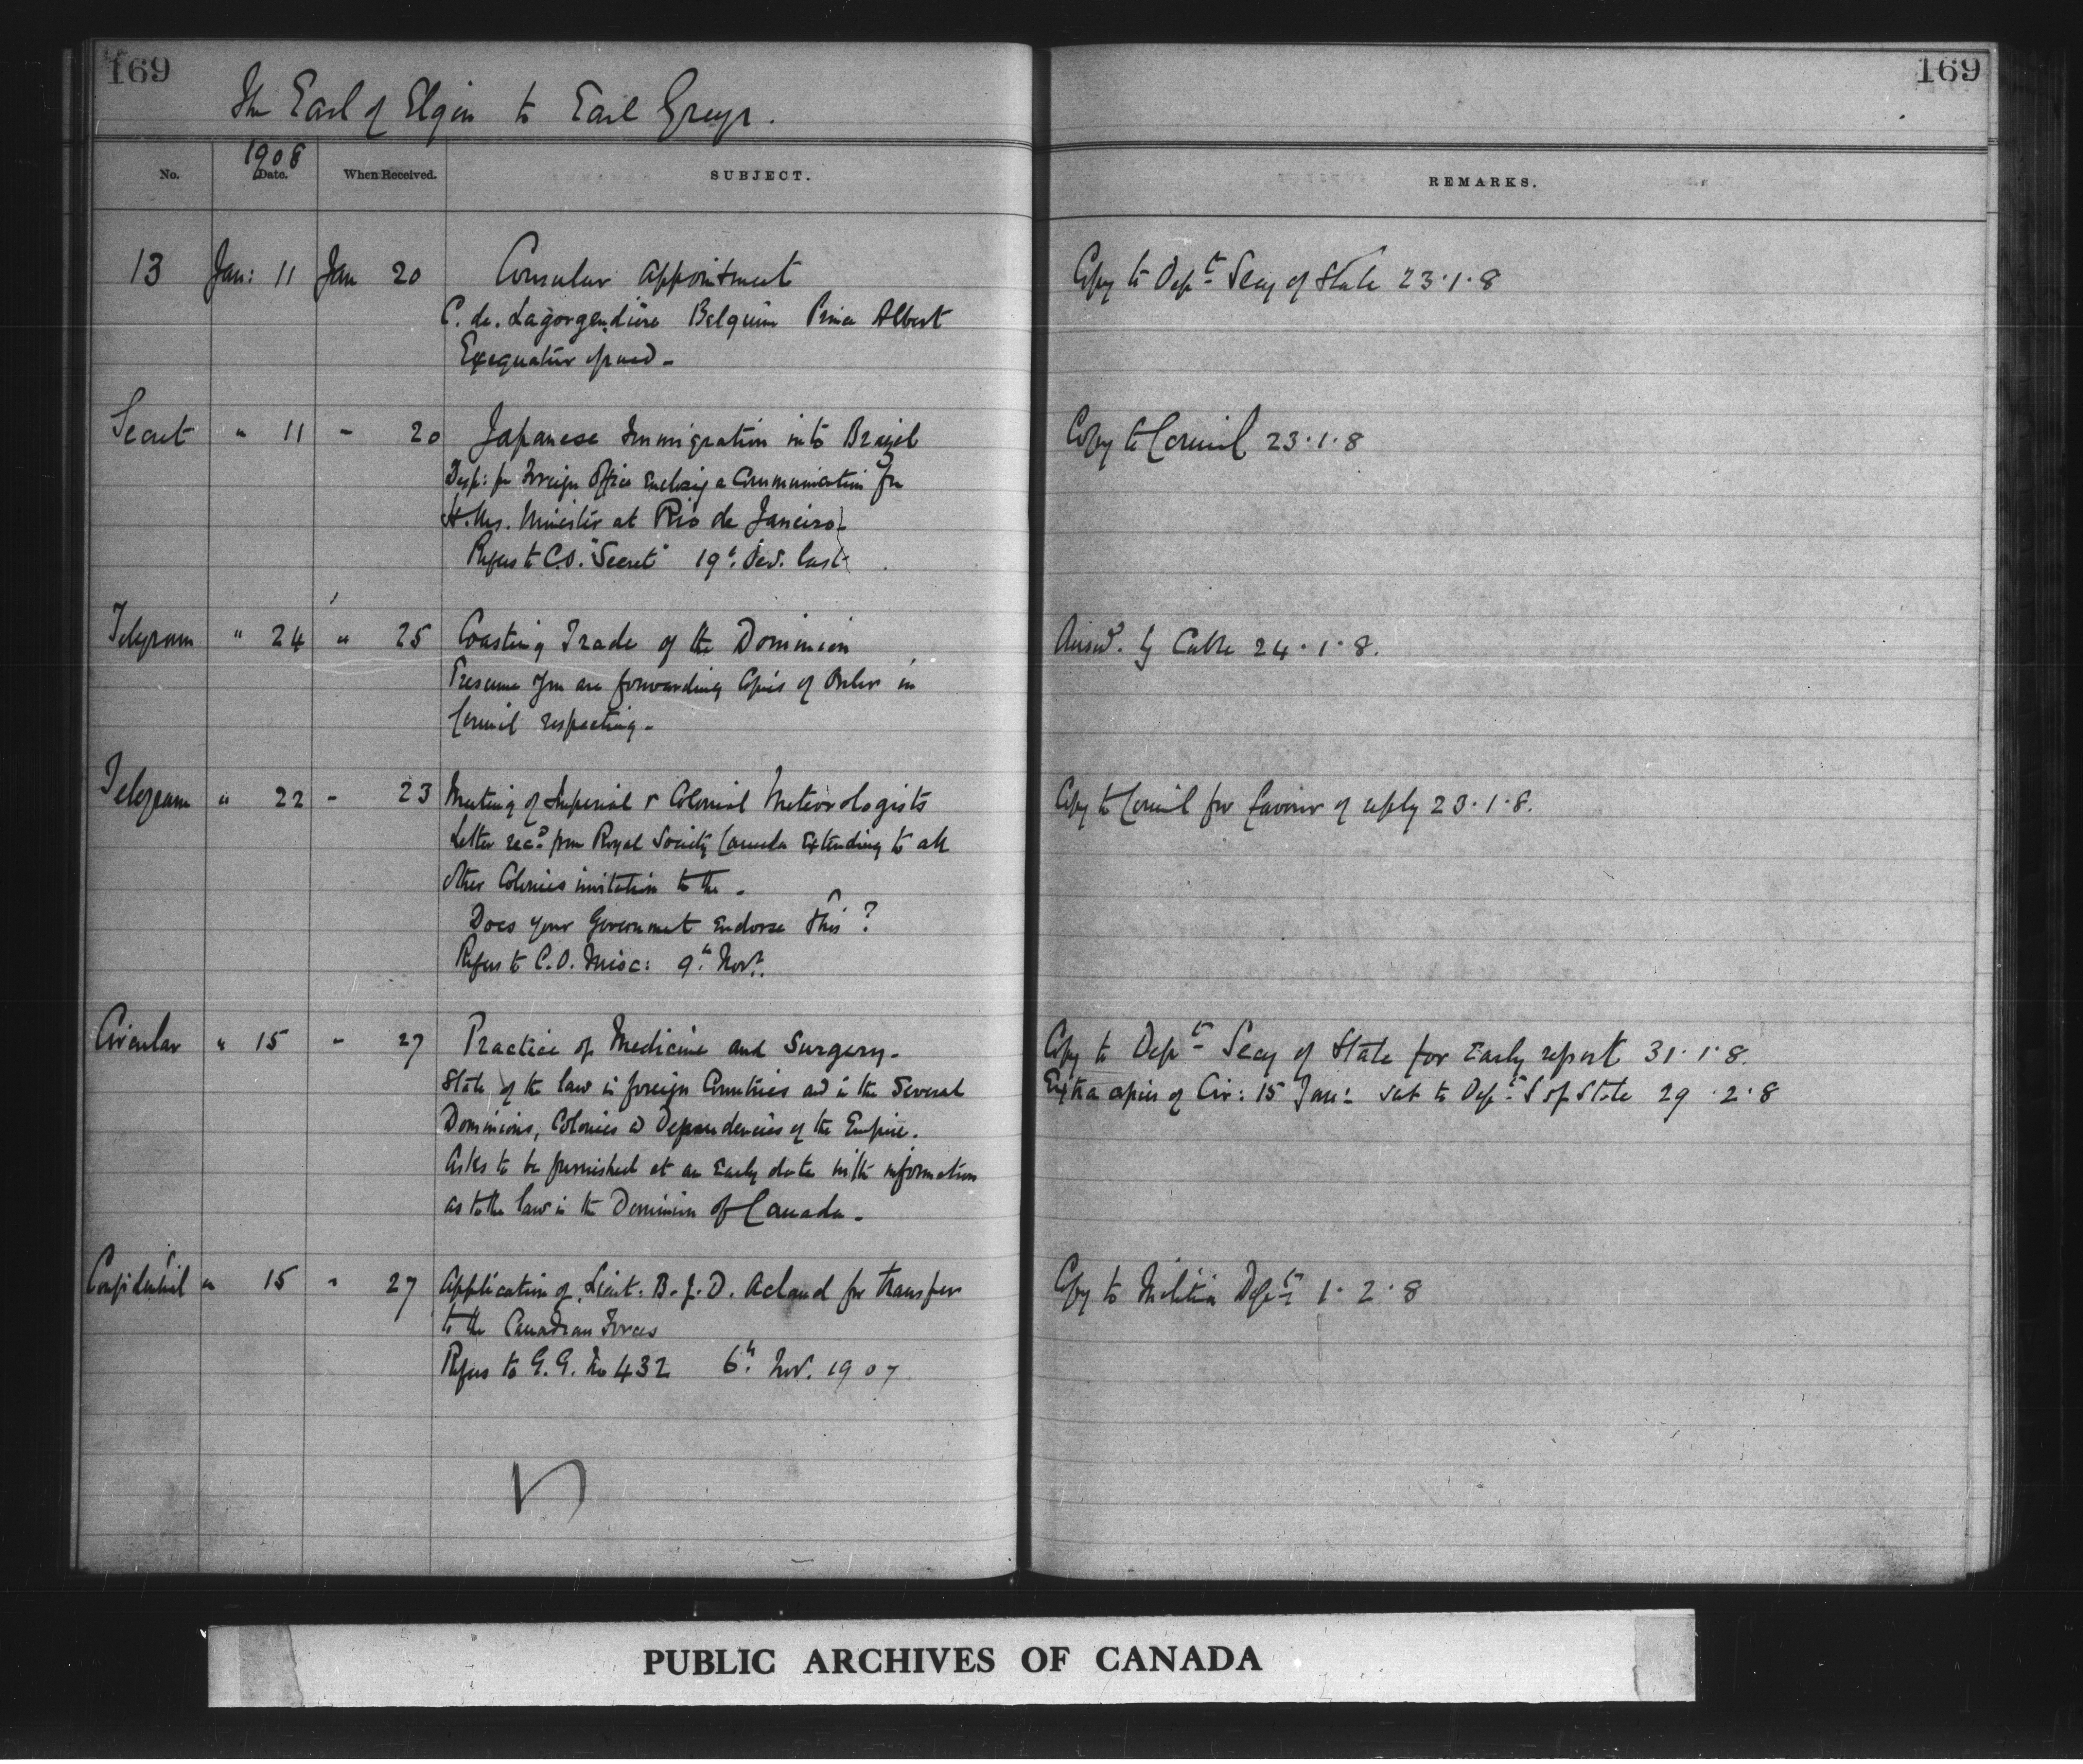 169
169
The Earl of Elgin to Earl Grey.
1908
No. Date. When Received. SUBJECT.
REMARKS.
13 Jan: 11 Jan 20 Consular Appointment
Copy to Dept Secy of State 23.1.8
C. de. Lagorgendière Belgium Prince Albert
Exequatur issued -
Secret " 11 - 20 Japanese Immigration into Brazil
Copy to Council 23.1.8
Desp: fr Foreign Office Enclosing a Communication fr
H.Ms. Minister at Rio de Janeiro
Refers to C.O. "Secret" 19th Dec. last
Telegram " 24 " 25 Coasting Trade of the Dominion
Answd. by Cable 24.1.8.
Presume you are forwarding Copies of Order in
Council respecting -
Telegram " 22 - 23 Meeting of Imperial & Colonial Meteorologists
Copy to Council for favour of reply 23.1.8.
Letter recd from Royal Society Canada Extending to all
other Colonies invitation to the -
Does your Government Endorse this ?
Refers to C.O. Misc: 9th Novr.
Circular " 15 - 27 Practice of Medicine and Surgery -
Copy to Dept Secy of State for Early report 31.1.8.
State of the law in foreign Countries and in the Several
Extra copies of Cir: 15 Jan: sent to Dept S of State 29.2.8
Dominions, Colonies & Dependencies of the Empire.
Asks to be furnished at an Early date with information
as to the law in the Dominion of Canada -
Confidential " 15 " 27 Application of Lieut. B. J. D. Acland for transfer
Copy to Militia Dept 1.2.8
to the Canadian Forces
Refers to G.G. No 432 6th Nov. 1907
PUBLIC ARCHIVES OF CANADA